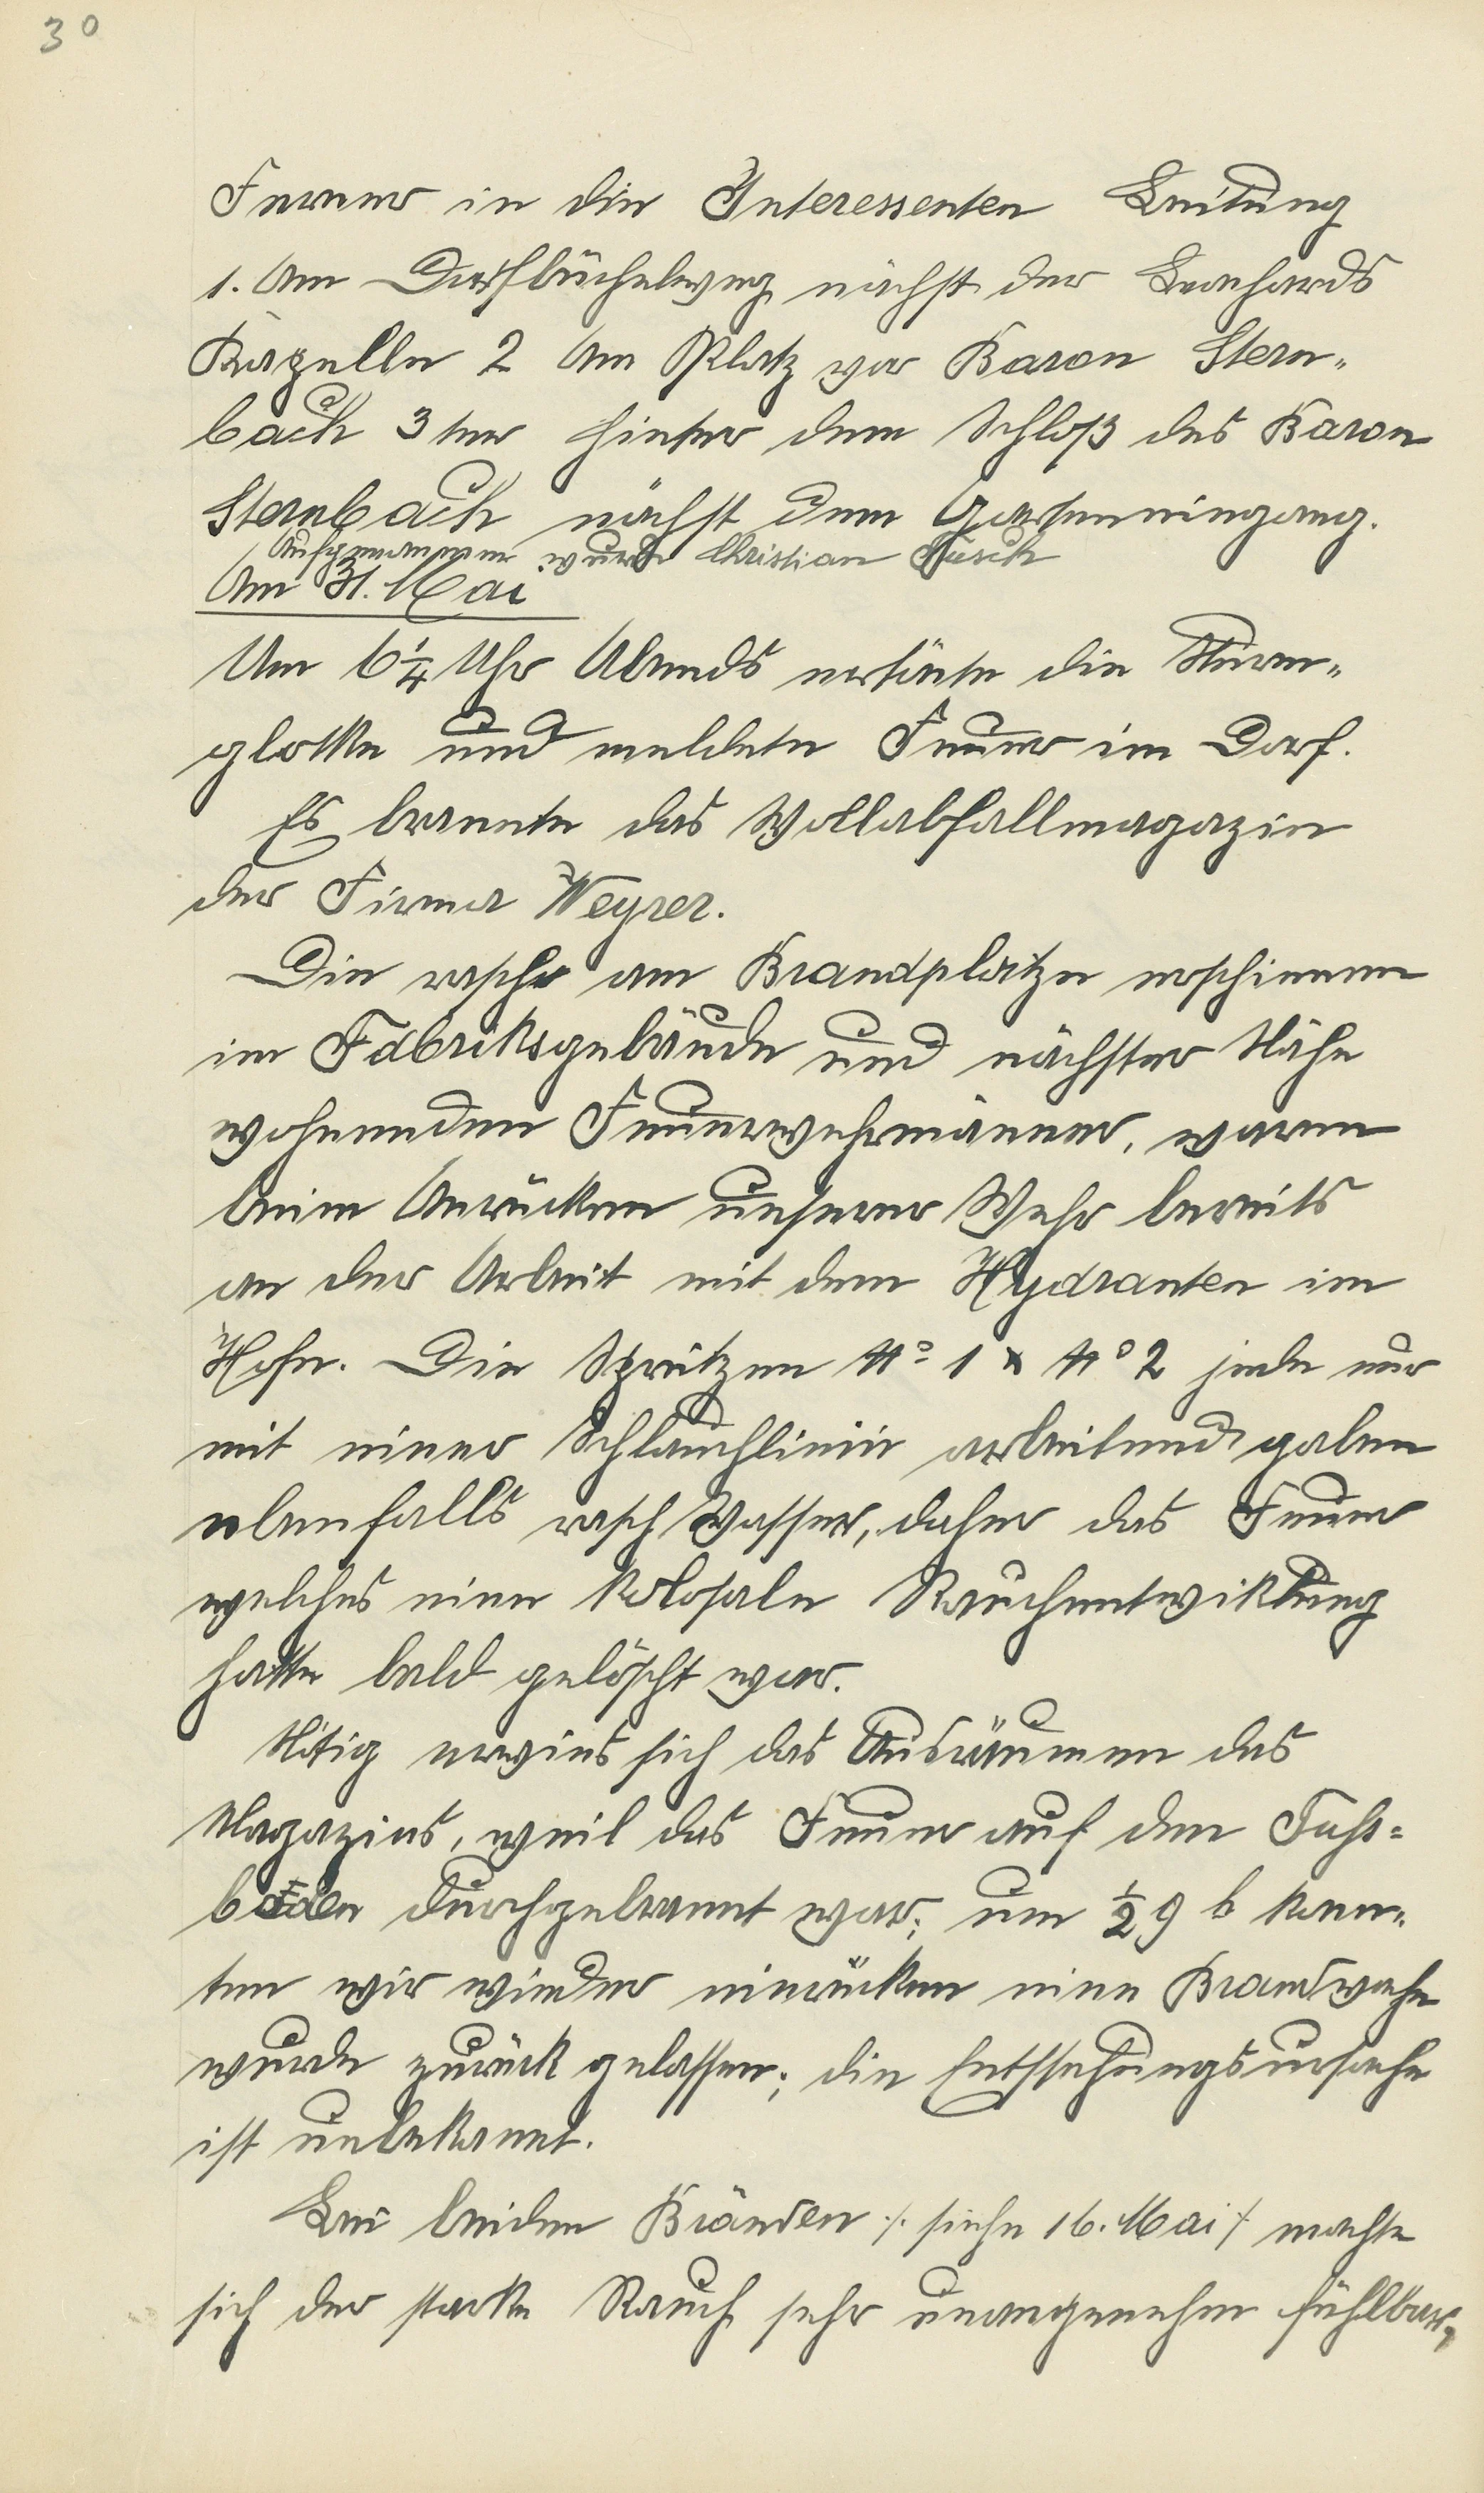 30
Ferner in die Interessenten Leitung
1. Am Dorfbüchelweg nächst der Leonhards
Kapelle 2 Am Platz vor Baron Stern-
bach 3ter hinter dem Schloß des Baron
Sternbach nächst dem Garteneingang.
Aufgenommen wurde Christian
Am 31. Mai
Um 6 1/4 Uhr Abends ertönte die Sturm-
glokke und meldete Feuer im Dorf.
Es brannte das Wollabfallmagazin
der Firma Weyrer.
Die rasch am Brandplatze erschienen
im Fabriksgebäude und nächster Nähe
wohnenden Feuerwehrmänner, waren
beim Anrücken unserer Wehr bereits
an der Arbeit mit dem Hydranten im
Hofe. Die Spritzen No 1 & No 2 jede nur
mit einer Schlauchlinie arbeitend gaben
ebenfalls rasch Wasser, daher das Feuer
welches eine kolosale Rauchentwiklung
hatte bald gelöscht war.
Nötig erwies sich das Ausräumen des
Magazins, weil das Feuer auf den Fuhs-
boden durchgebrannt war; um 1/2 9 h konn-
ten wir wieder einrücken eine Brandwache
wurde zurück gelassen; die Entstehungsursache
ist unbekannt.
Bei beiden Bränden /. siehe 16. Mai / machte
sich der starke Rauch sehr unangenehm fühlbar,